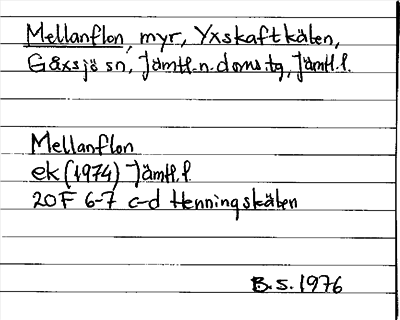 Mellanflon, myr, Yxskaftkälen,
Gåxsjö sn, Jämtl.n.doms.tg, Jämtl.l.
Mellanflon
ek (1974) Jämtl.l
20F 6-7 c-d Henningskälen
B.S. 1976